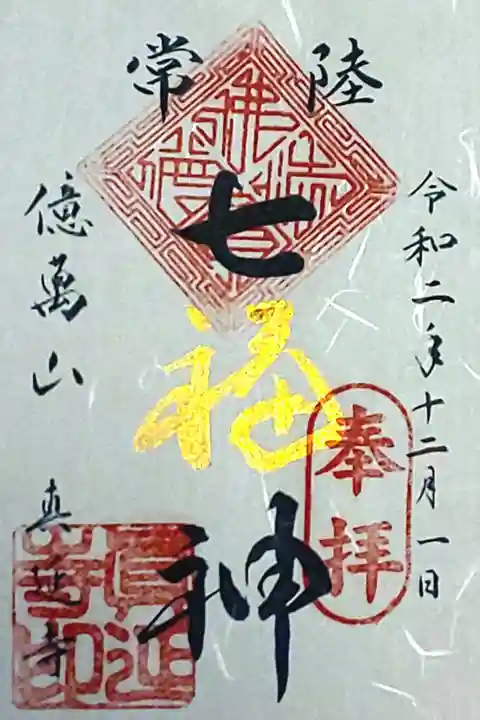 常陸
令和二年十二月一日
奉拝
七福神
億萬山
真延寺
眞延寺印